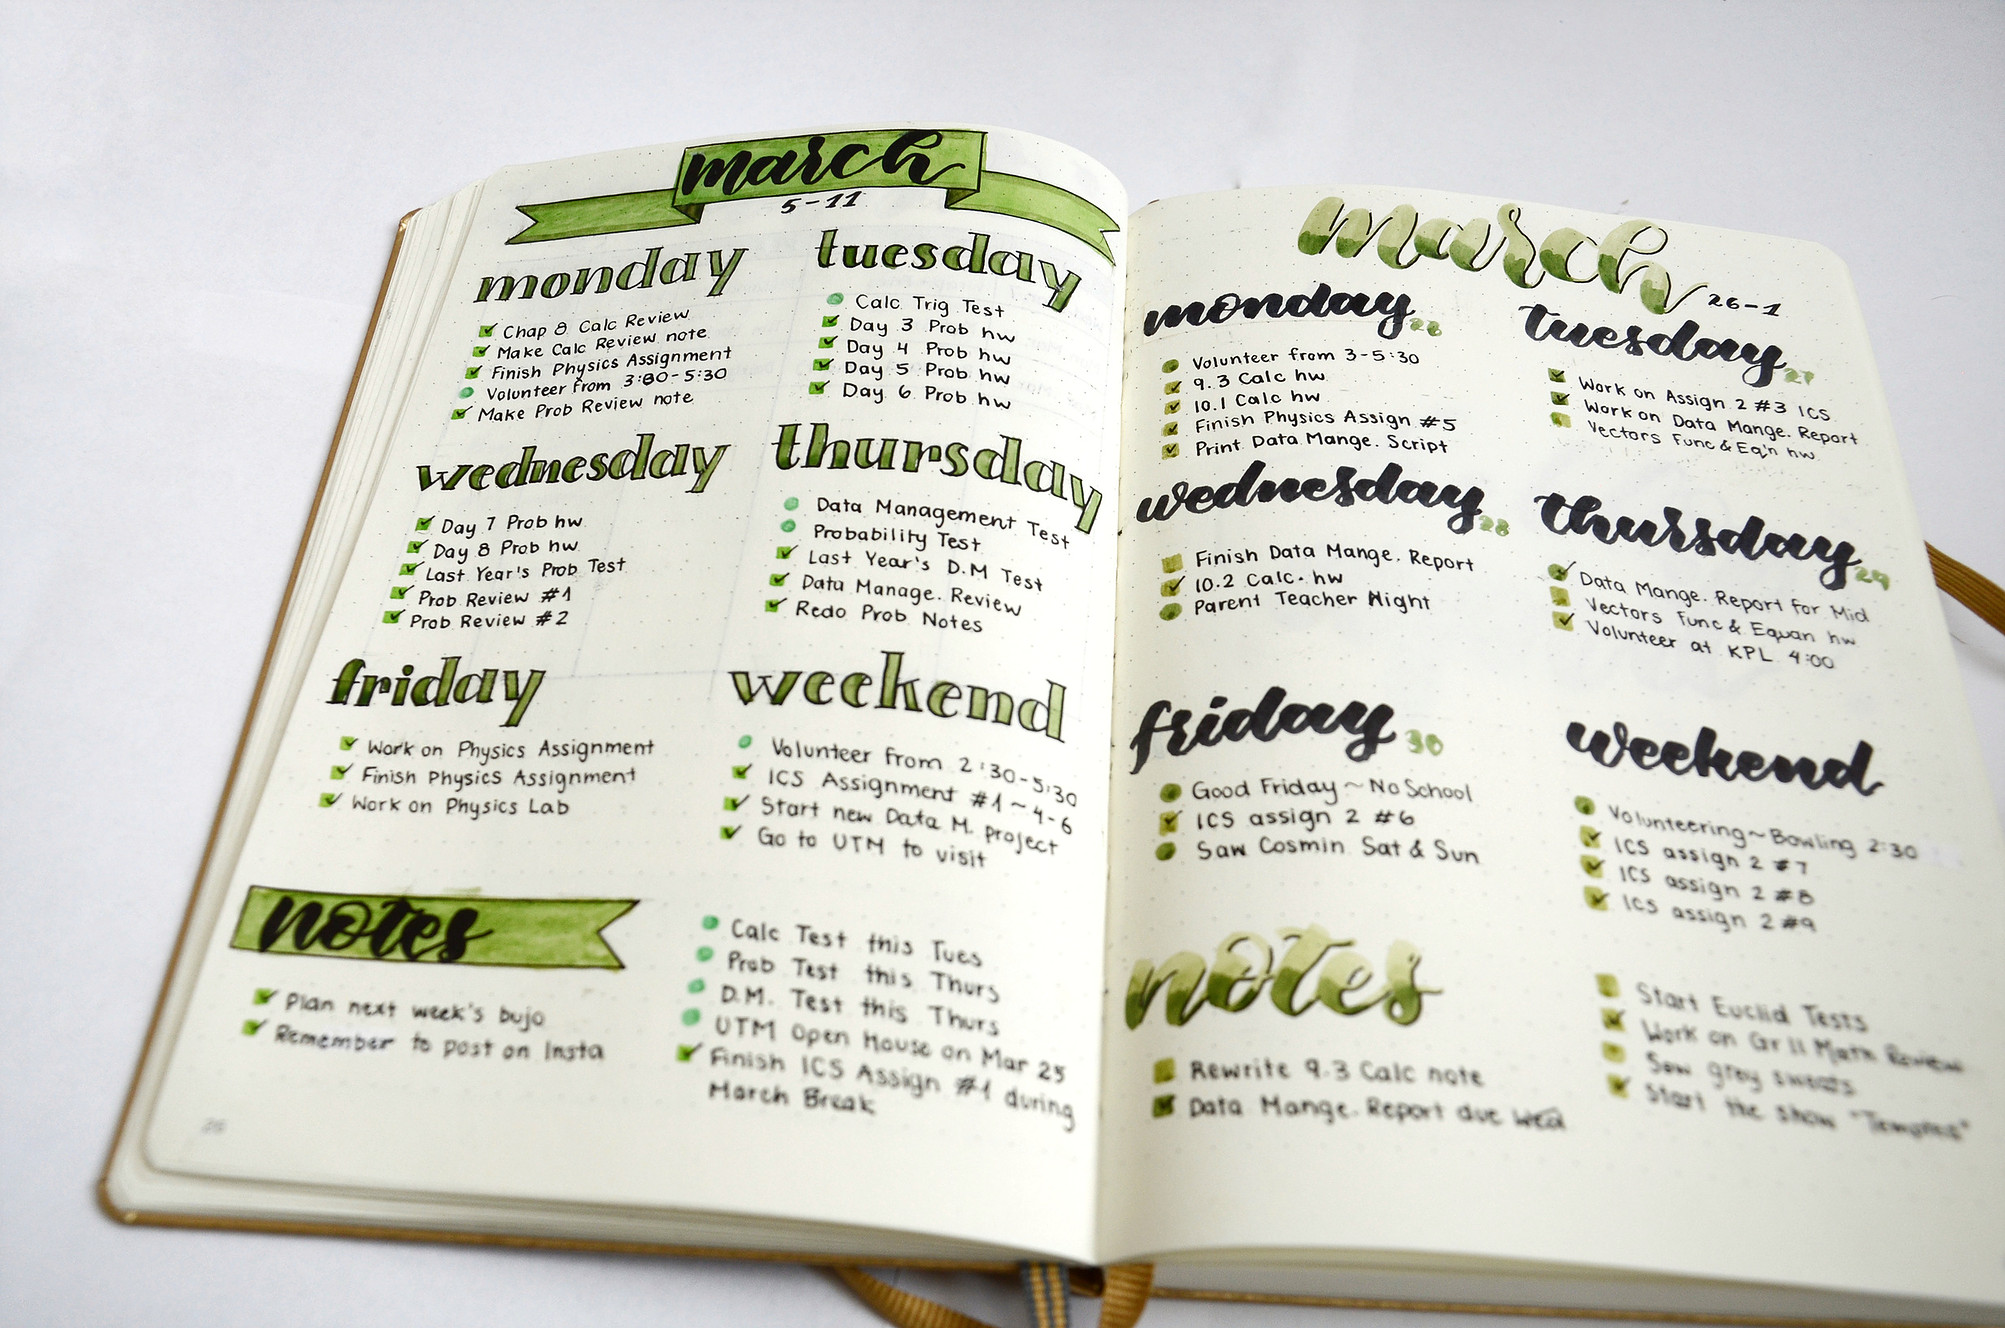 march
5-11
monday
Chap 8 Calc Review
Make Calc Review note
Finish Physics Assignment
Volunteer from 3:30-5:30
Make Prob Review note
tuesday
Calc Trig Test
Day 3 Prob hw
Day 4 Prob hw
Day 5 Prob hw
Day 6 Prob hw
wednesday
Day 7 Prob hw
Day 8 Prob hw
Last Year's Prob Test
Prob Review #1
Prob Review #2
thursday
Data Management Test
Probability Test
Last Year's D.M Test
Data Manage. Review
Redo Prob Notes
friday
Work on Physics Assignment
Finish Physics Assignment
Work on Physics Lab
weekend
Volunteer from 2:30-5:30
ICS Assignment #1~4-6
Start new Data M. project
Go to UTM to visit
notes
Plan next week's bujo
Remember to post on Insta
Calc Test this Tues
Prob Test this Thurs
D.M. Test this Thurs
UTM Open House on Mar 25
Finish ICS Assign #1 during
March Break
26
march
26-1
monday 26
Volunteer from 3-5:30
9.3 Calc hw
10.1 Calc hw
Finish Physics Assign #5
Print Data Mange. Script
tuesday 27
Work on Assign 2 #3 ICS
Work on Data Mange. Report
Vectors Func & Eq'n hw
wednesday 28
Finish Data Mange. Report
10.2 Calc. hw
Parent Teacher Night
thursday 29
Data Mange. Report for Mid
Vectors Func & Equan hw
Volunteer at KPL 4:00
friday 30
Good Friday ~ No School
ICS assign 2 #6
Saw Cosmin Sat & Sun
weekend
Volunteering ~ Bowling 2:30
ICS assign 2 #7
ICS assign 2 #8
ICS assign 2 #9
notes
Rewrite 9.3 Calc note
Data Mange. Report due Wed
Start Euclid Tests
Work on Gr 11 Math Review
Sew grey sweats
Start the show